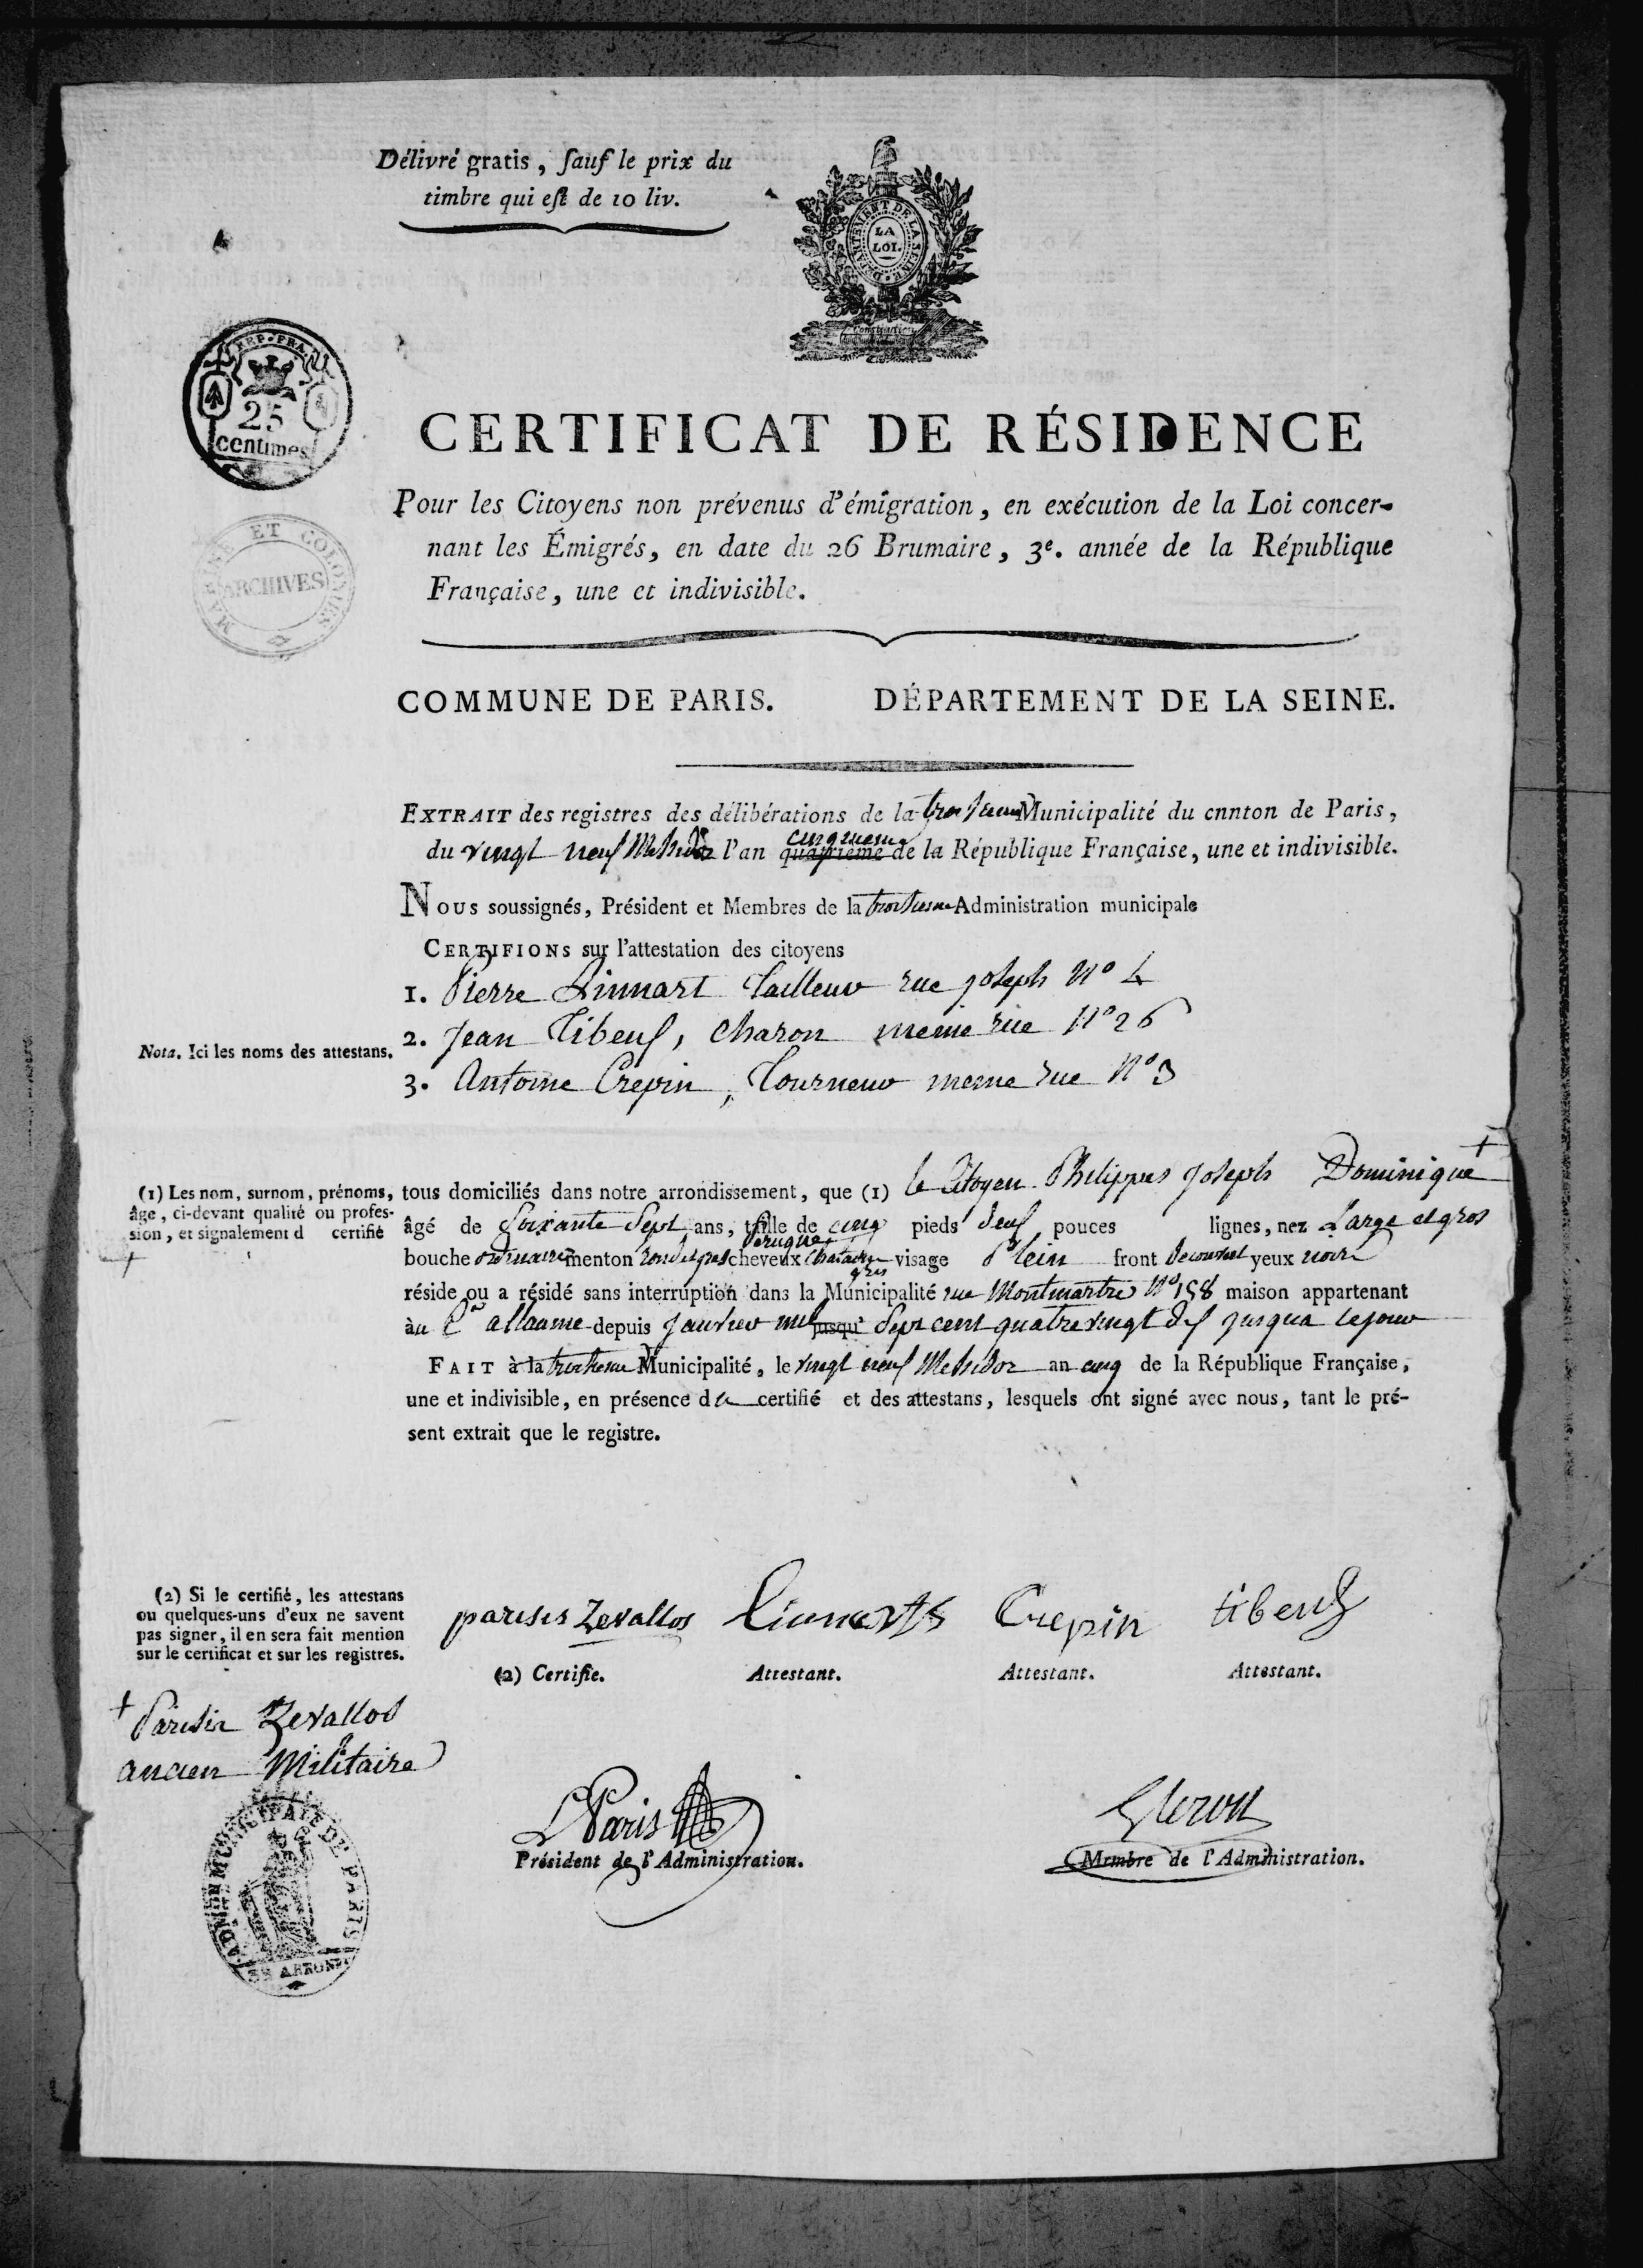 Délivré gratis, ſauf le prix du
timbre qui eſt de 10 liv.
DÉPARTEMENT DE LA SEINE
LA
LOI.
Constitution
REP. FRA.
25
centimes
MARINE ET COLONIES
ARCHIVES
CERTIFICAT DE RÉSIDENCE
Pour les Citoyens non prévenus d'émigration, en exécution de la Loi concer-
nant les Émigrés, en date du 26 Brumaire, 3e. année de la République
Française, une et indivisible.
COMMUNE DE PARIS. DÉPARTEMENT DE LA SEINE.
EXTRAIT des registres des délibérations de la troisieme Municipalité du cnnton de Paris,
du vingt neuf Messidor l'an quatrième cinquieme de la République Française, une et indivisible.
Nous soussignés, Président et Membres de la troisieme Administration municipale
CERTIFIONS sur l'attestation des citoyens
1. Pierre Linnart Tailleur rue joseph N° 4
2. Jean Tibeuf, Charon meme rue N° 26
Nota. Ici les noms des attestans.
3. Antoine Crepin, Tourneur meme rue N° 3
(1) Les nom, surnom, prénoms, âge, ci-devant qualité ou profes-
sion, et signalement d certifié
+
tous domiciliés dans notre arrondissement, que (1) le Citoyen Philippes joseph Dominique +
âgé de Soixante Sept ans, taille de cinq pieds deux pouces lignes, nez Large et gros
bouche ordinaire menton rond et gras cheveux perruque chatain gris visage Plein front decouvert yeux noirs
réside ou a résidé sans interruption dans la Municipalité rue Montmartre N° 158 maison appartenant
àu Cen allaume depuis janvier mil jusqu' Sept cent quatre vingt dix jusqua cejour
FAIT à la troisieme Municipalité, le vingt neuf Messidor an cinq de la République Française,
une et indivisible, en présence du certifié et des attestans, lesquels ont signé avec nous, tant le pré-
sent extrait que le registre.
(2) Si le certifié, les attestans
ou quelques-uns d'eux ne savent
pas signer, il en sera fait mention
sur le certificat et sur les registres.
parisis Zevallos Crepin tibeuf
(2) Certifie. Attestant. Attestant. Attestant.
+ Parisis Zevallos
ancien Militaire
Paris
Président de l'Administration. Mrmbre de l'Administration.
ADMON MUNICIPALE DE PARIS
3E ARRONDT